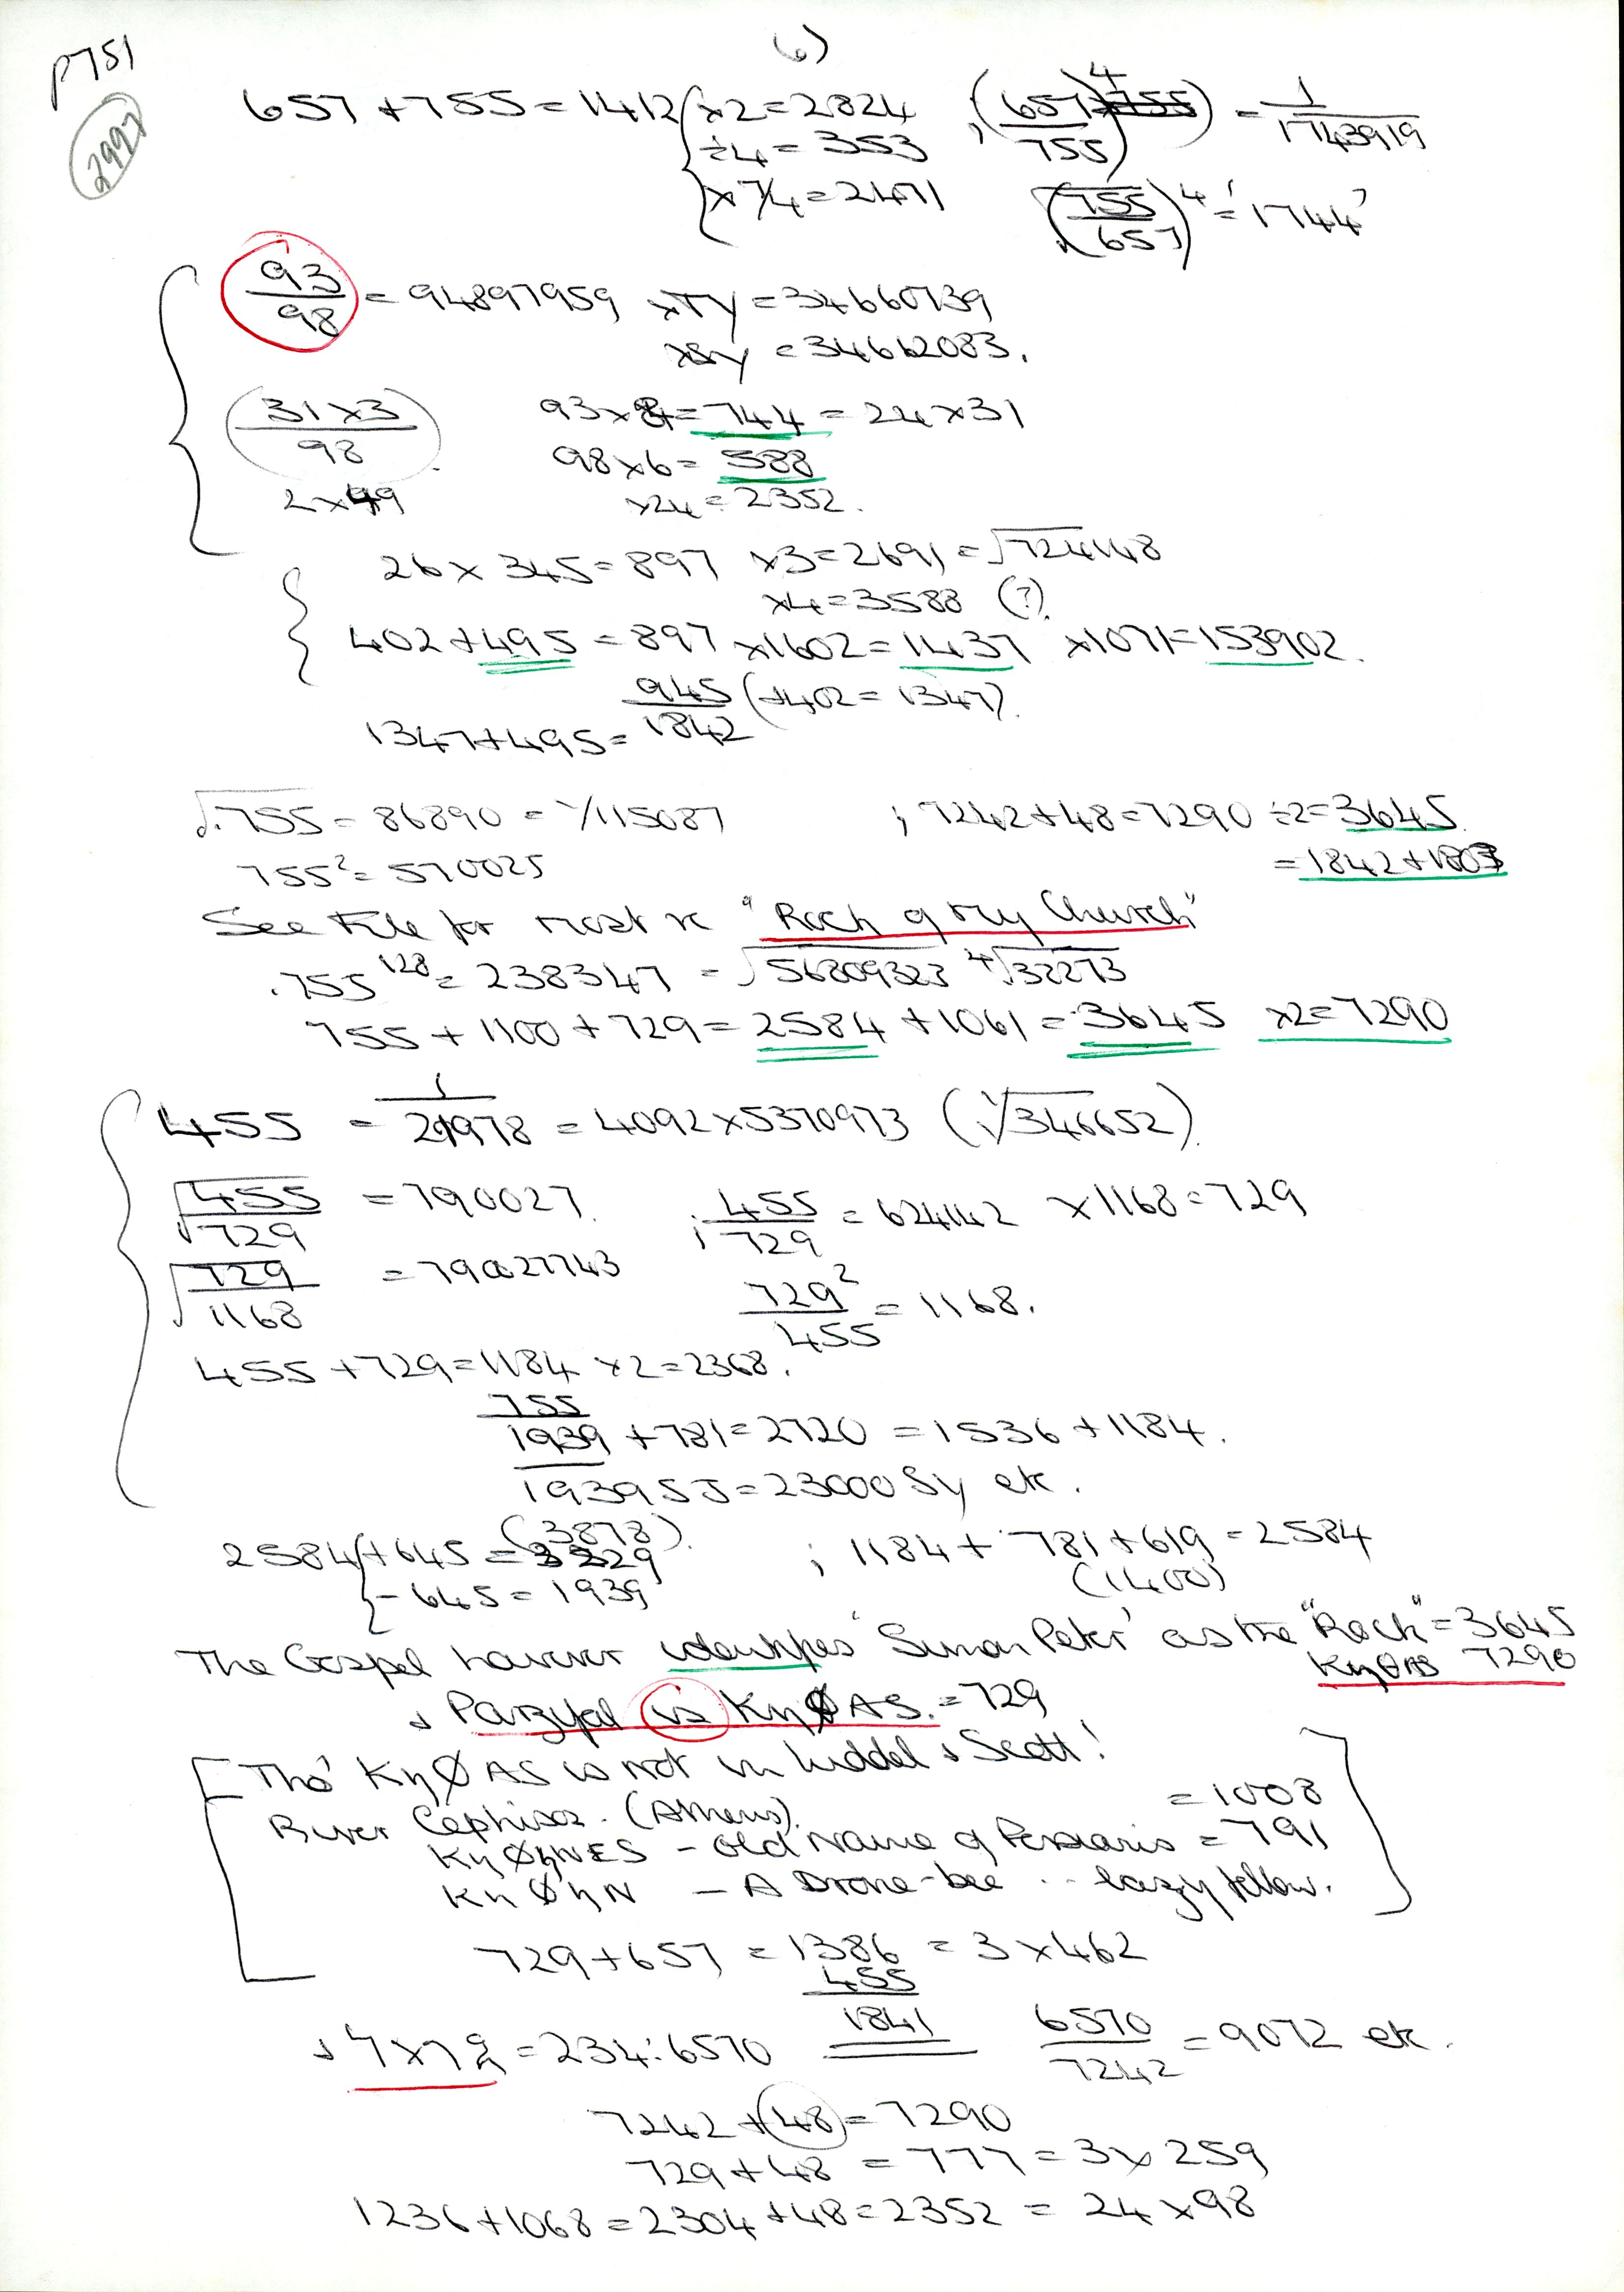 P751
2997
6)
657 + 755 = 1412 { x2 = 2824 ; (657/755)^4 = 1/1743919
÷4 = 353
x 7/4 = 2471 (755/657)^4 = '1744'
93/98 = 94897959 x TY = 34660739
x SY = 34662083.
31 x 3 / 98 93 x 8 = 744 = 24 x 31
98 x 6 = 588
2 x 49 x24 = 2352.
26 x 345 = 897 x3 = 2691 = √724148
x4 = 3588 (?)
402 + 495 = 897 x1602 = 1437 x1071 = 153902.
945 (+402 = 1347).
1347 + 495 = 1842
√.755 = 86890 = 1/115087 ; 7242 + 48 = 7290 ÷2 = 3645
755² = 570025 = 1842 + 1803
See File for most re "Rock of my Church"
.755^128 = 238347 = √56809323 4√32273
755 + 1100 + 729 = 2584 + 1061 = 3645 x2 = 7290
455 = 1/21978 = 4092 x 5370973 (√346652).
√455/729 = 790027. ; 455/729 = 624142 x1168 = 729
√729/1168 = 790027743 729²/455 = 1168.
455 + 729 = 1184 x2 = 2368.
755
1939 + 781 = 2720 = 1536 + 1184.
1939 SJ = 23000 SY etc.
(3878)
2584 { + 645 = 3229 ; 1184 + 781 + 619 = 2584
- 645 = 1939 (1400)
The Gospel however identifies 'Simon Peter' as the "Rock" = 3645
KηΦAS 7290
& Parzifal is KηΦAS. = 729
[Tho' KηΦAS is not in Liddel & Scott!
River Cephisos. (Athens). = 1008
KηΦηNES - Old Name of Persians = 791
KηΦηN - A Drone-bee .. lazy fellow.]
729 + 657 = 1386 = 3 x 462
455
& 7 x 72 = 234:6570 1841 6570/7242 = 9072 etc.
7242 + 48 = 7290
729 + 48 = 777 = 3 x 259
1236 + 1068 = 2304 + 48 = 2352 = 24 x 98